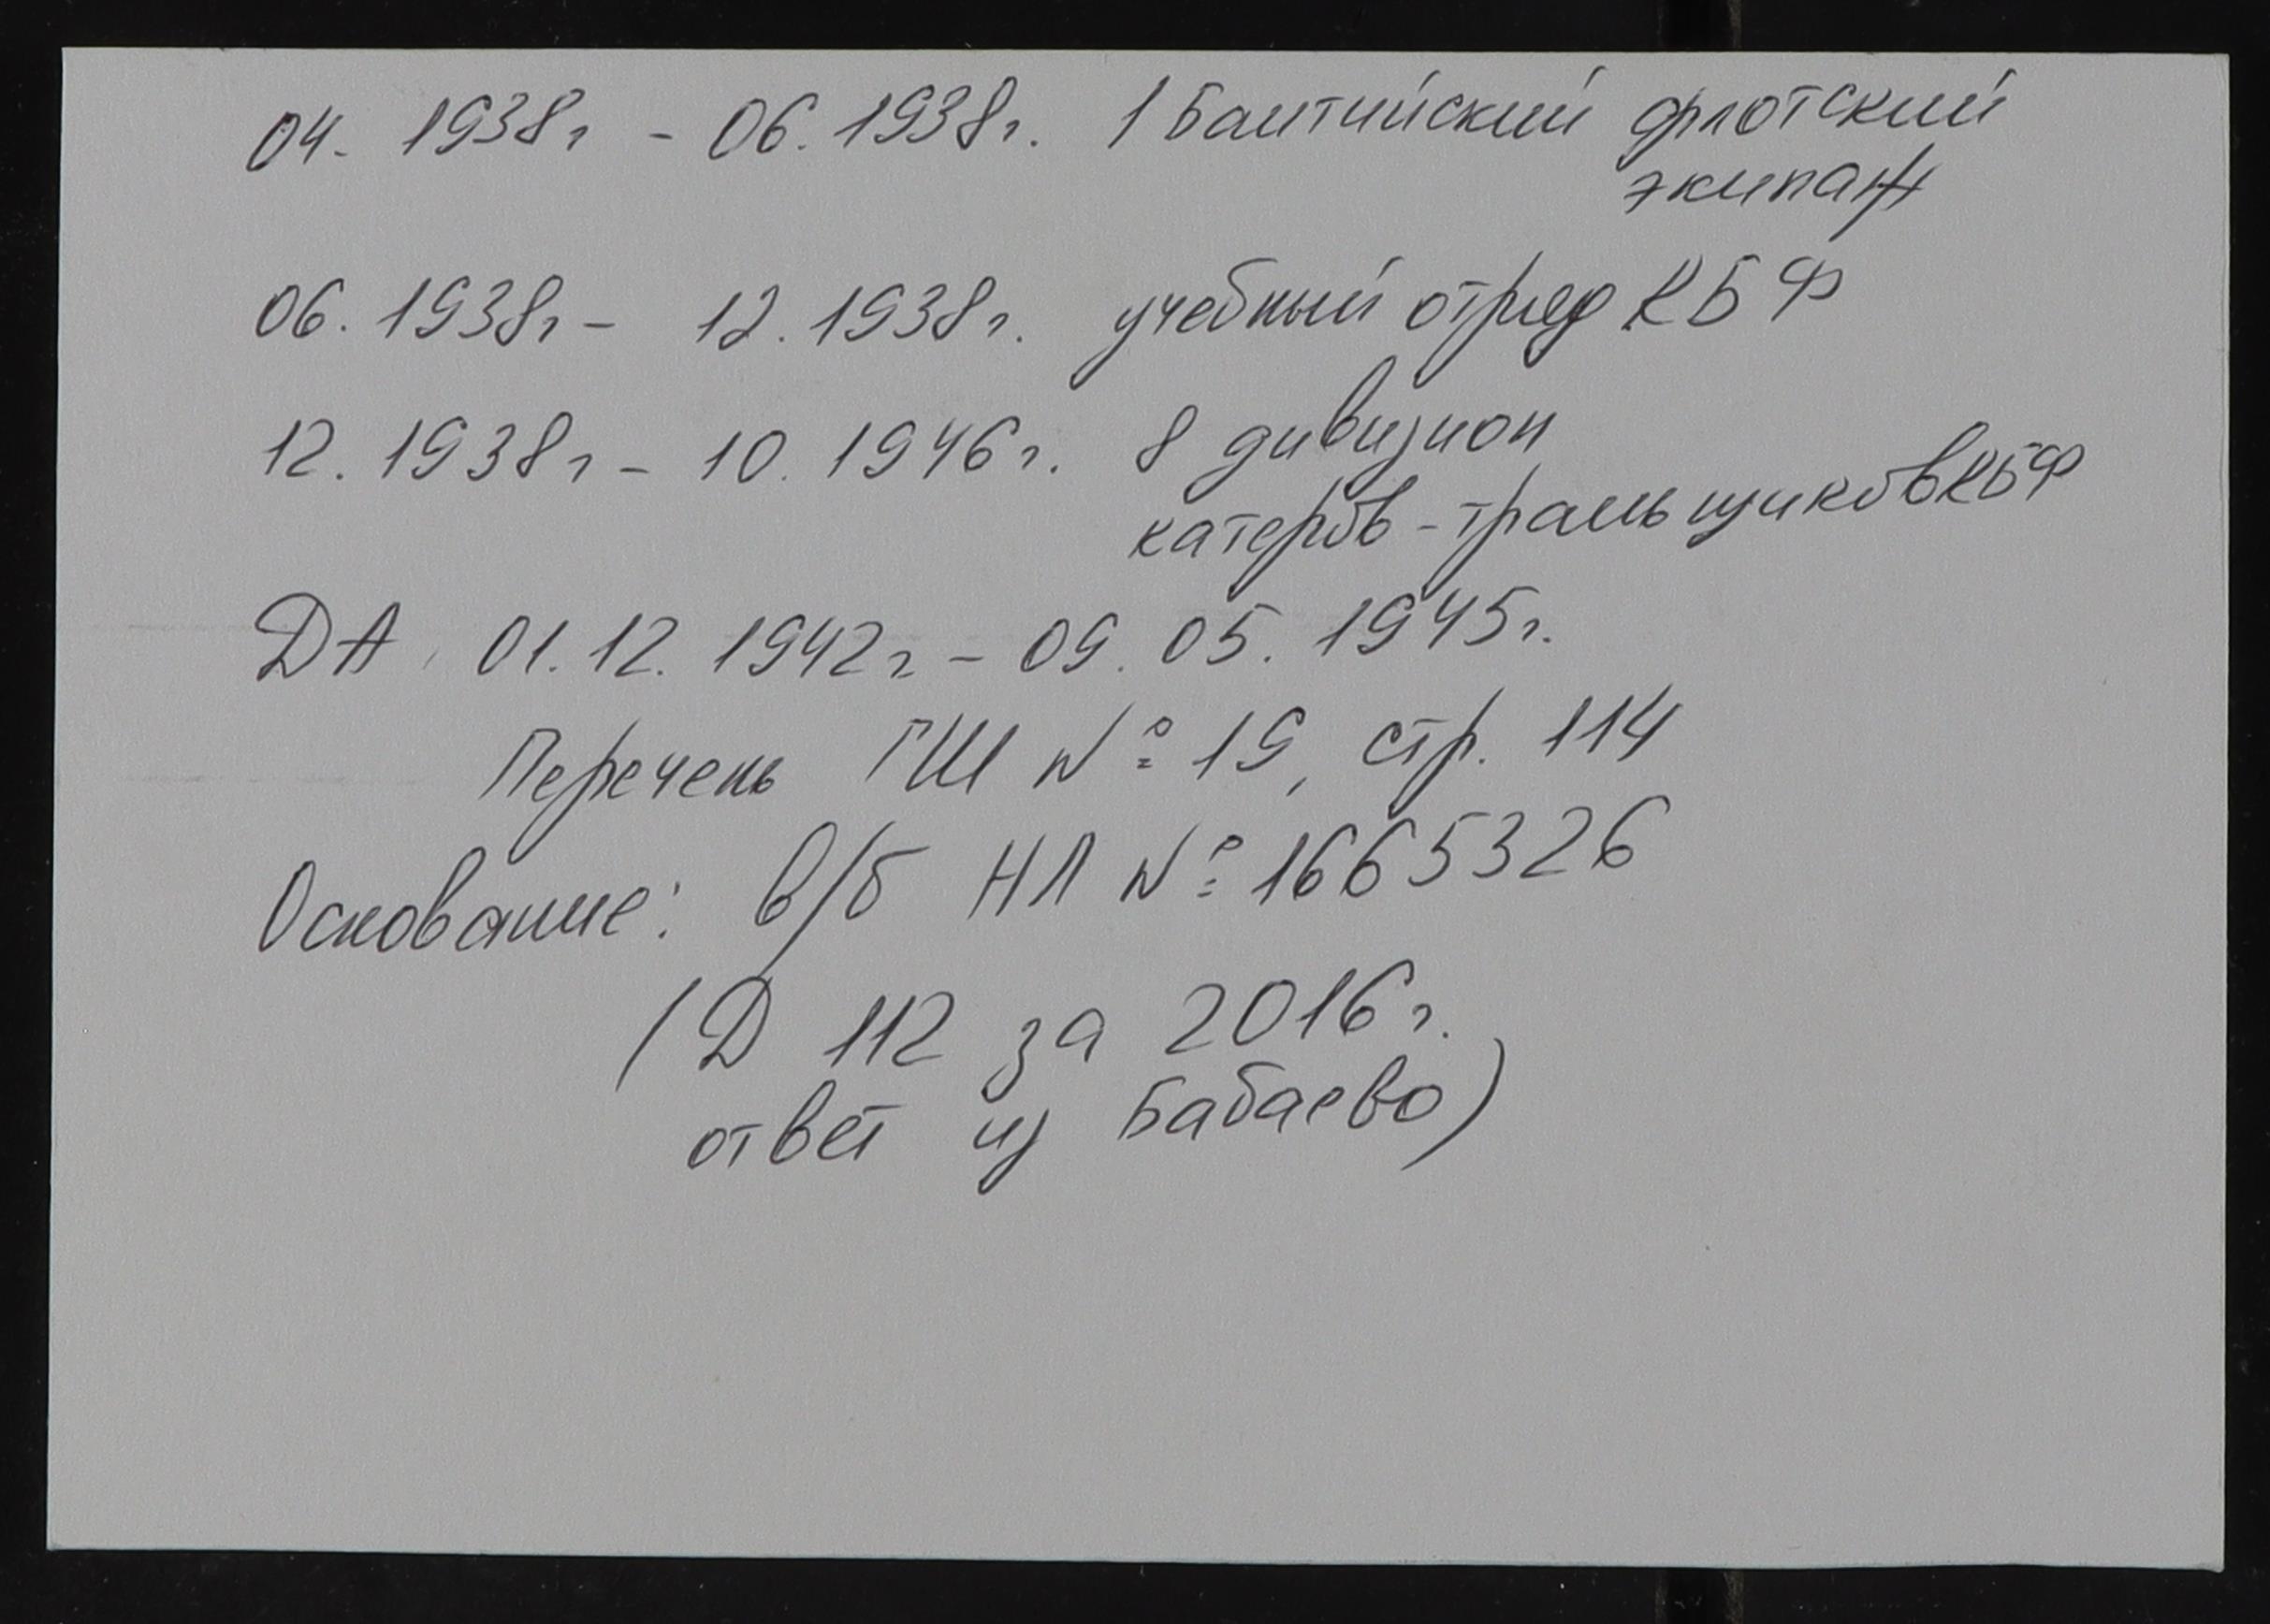 04. 1938г - 06. 1938г. 1 Балтийский флотский
экипаж
06. 1938г - 12. 1938г. учебный отряд КБФ
12. 1938г - 10. 1946г. 8 дивизион
катеров-тральщиков КБФ
ДА 01. 12. 1942г - 09. 05. 1945г.
Перечень ГШ № 19, стр. 114
Основание: в/б НЛ № 1665326
(Д 112 за 2016г.
ответ из Бабаево)